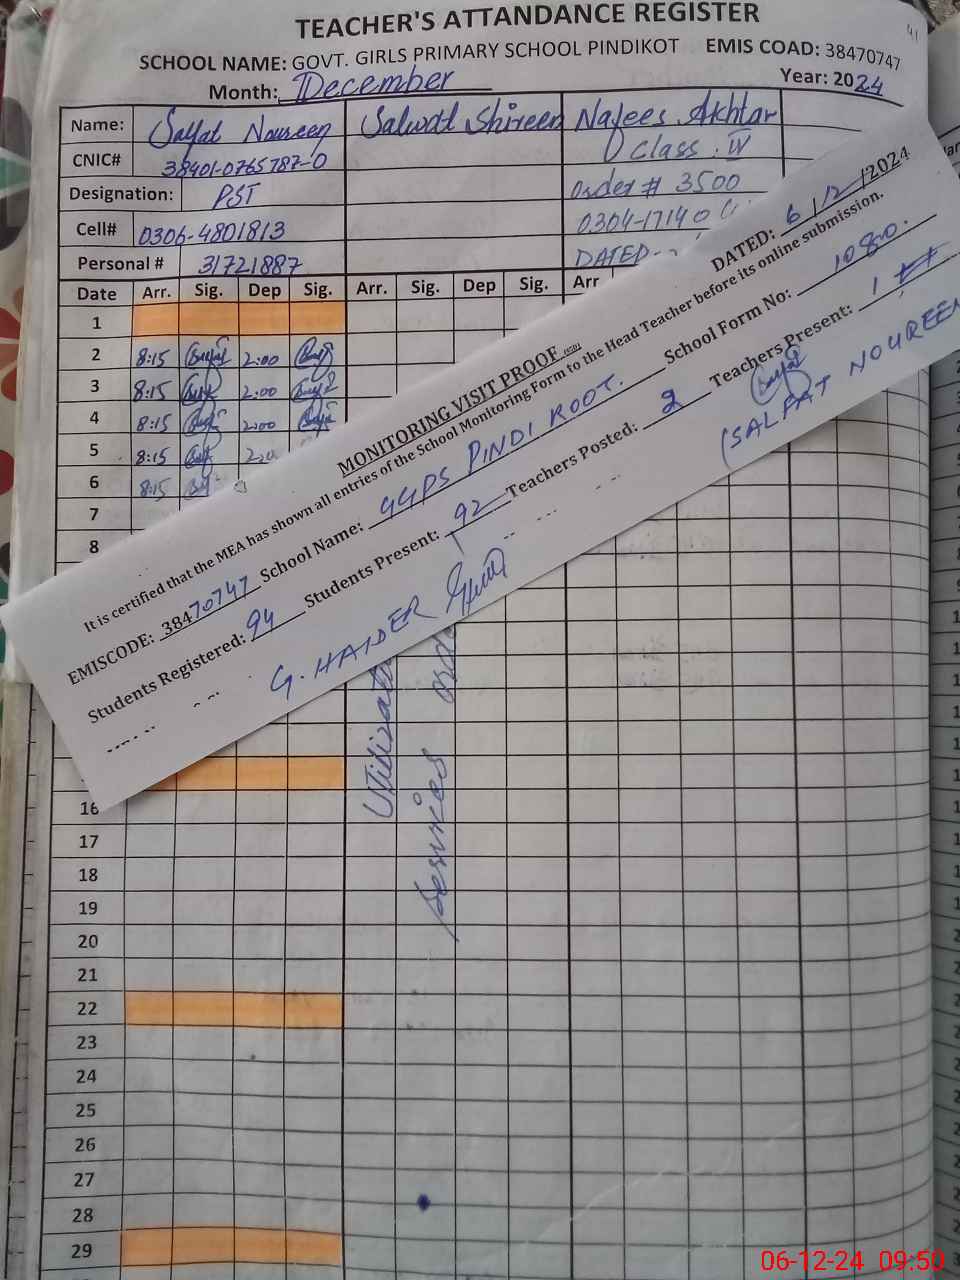 TEACHER'S ATTANDANCE REGISTER
41
SCHOOL NAME: GOVT. GIRLS PRIMARY SCHOOL PINDIKOT EMIS COAD: 38470747
Month: December Year: 2024
Name: Salfat Noureen Salwat Shireen Nafees Akhtar
CNIC# 38401-0765787-0 Class. IV
Designation: PST Order # 3500
Cell# 0306-4801813 0304-1714
Personal # 31721887 DATED
Date Arr. Sig. Dep Sig. Arr. Sig. Dep Sig. Arr
1
2 8:15 2:00
3 8:15 2:00
4 8:15 2:00
5 8:15
6 8:15
7
8
DATED: 6/12/2024
MONITORING VISIT PROOF
It is certified that the MEA has shown all entries of the School Monitoring Form to the Head Teacher before its online submission.
EMISCODE: 38470747 School Name: GGPS PINDI KOOT. School Form No: 1080.
Students Registered: 94 Students Present: 92 Teachers Posted: 2 Teachers Present: 1
G. HAIDER
(SALFAT NOUREEN
Utilizato
Services
16
17
18
19
20
21
22
23
24
25
26
27
28
29
06-12-24 09:50